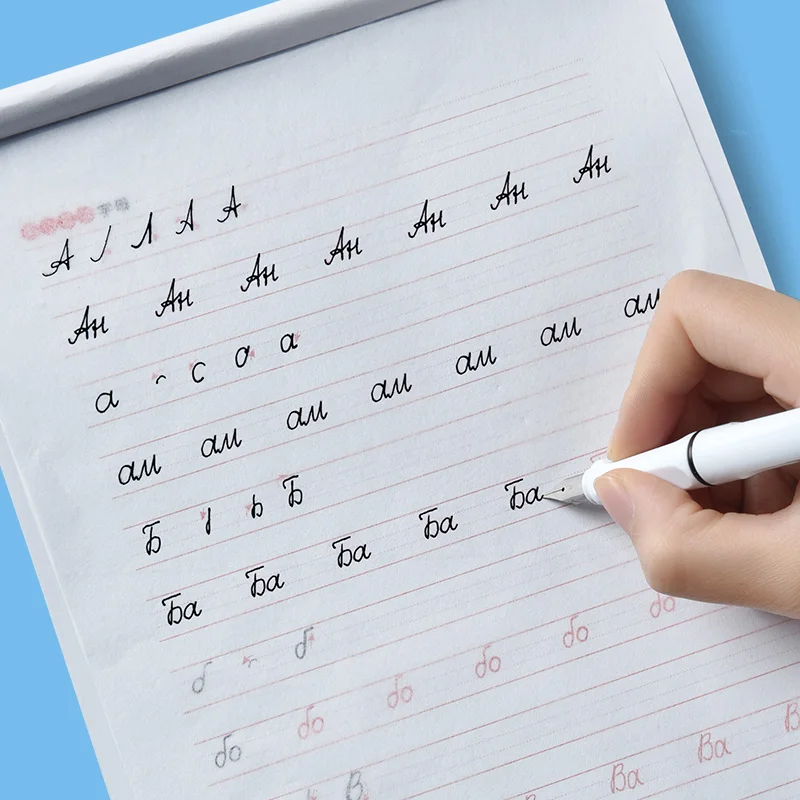 А Л А А
Ан Ан Ан Ан Ан Ан Ан
а с о а
ам ам ам ам ам ам ам
Б ь Б
Ба Ба Ба Ба Ба
б б
бо бо бо бо бо бо
В
Ва Ва